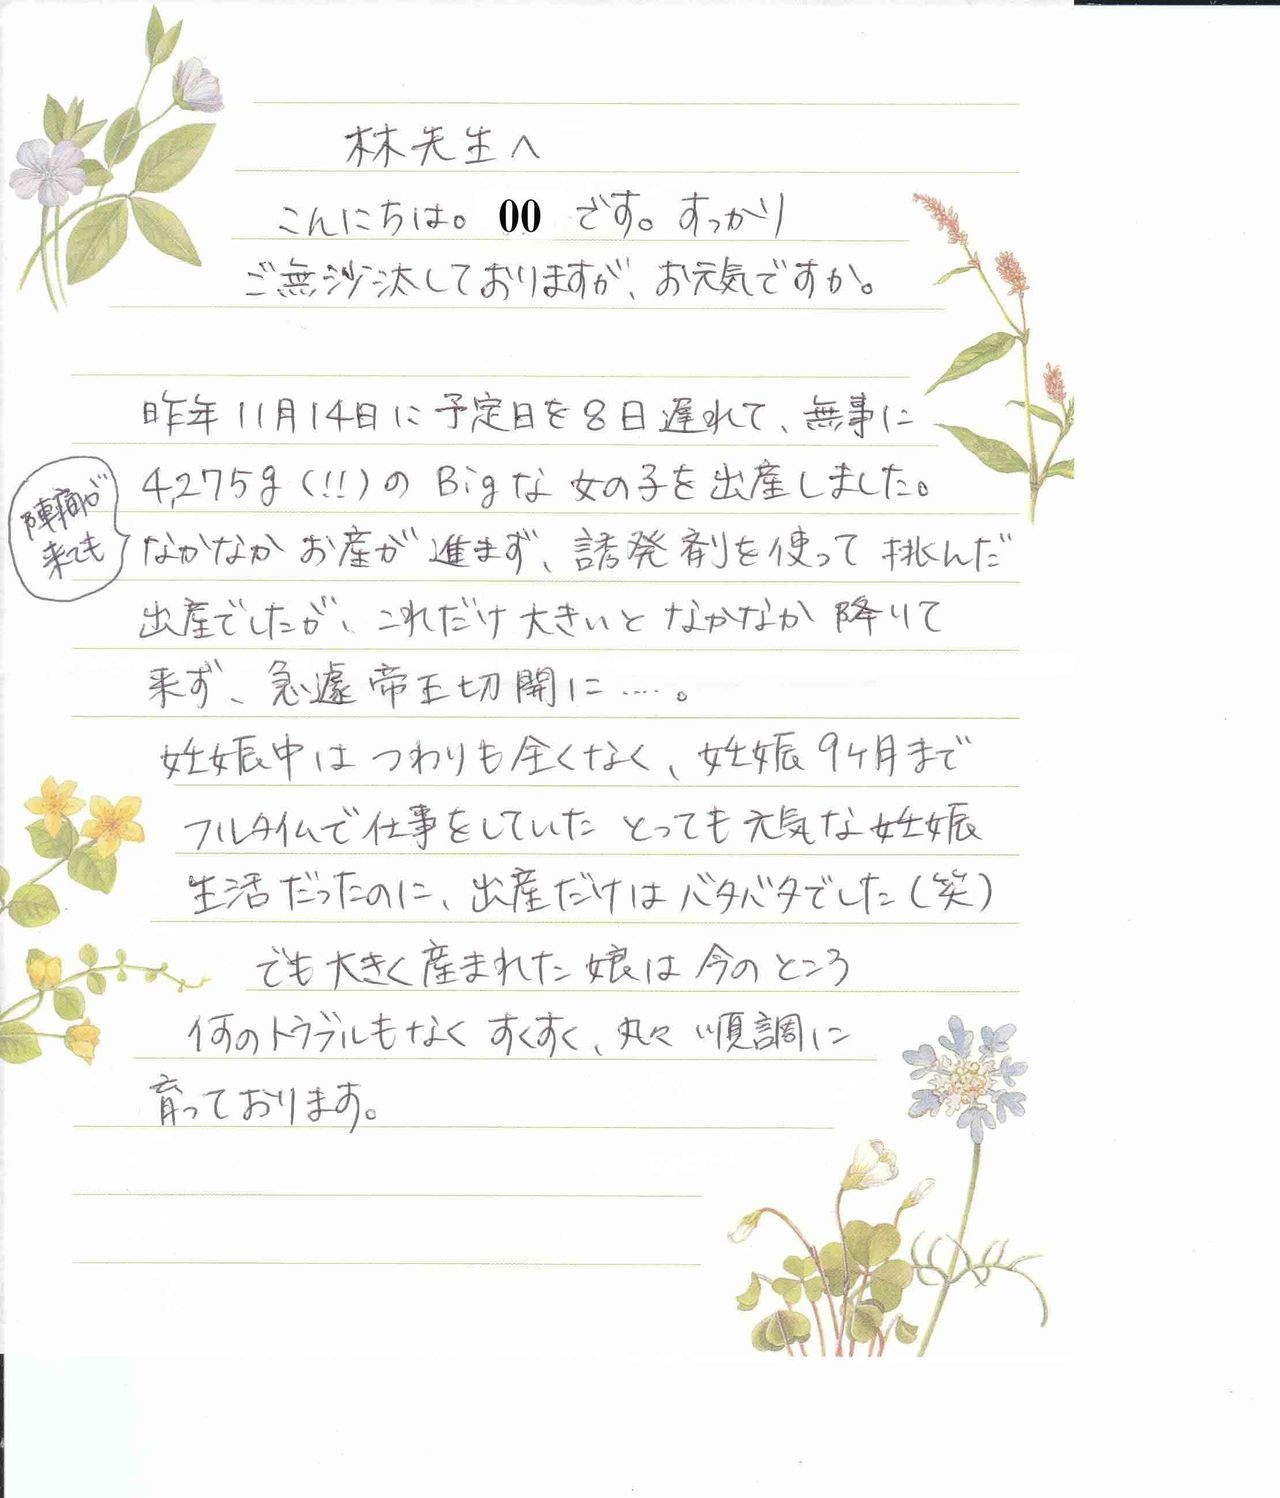 林先生へ
こんにちは。 00 です。すっかり
ご無沙汰しておりますが、お元気ですか。
昨年11月14日に予定日を8日遅れて、無事に
4,275g(!!)のBigな女の子を出産しました。
陣痛が
来ても
なかなかお産が進まず、誘発剤を使って挑んだ
出産でしたが、これだけ大きいとなかなか降りて
来ず、急遽帝王切開に‥‥。
妊娠中はつわりも全くなく、妊娠9ヶ月まで
フルタイムで仕事をしていたとっても元気な妊娠
生活だったのに、出産だけはバタバタでした(笑)
でも大きく産まれた娘は今のところ
何のトラブルもなくすくすく、丸々順調に
育っております。